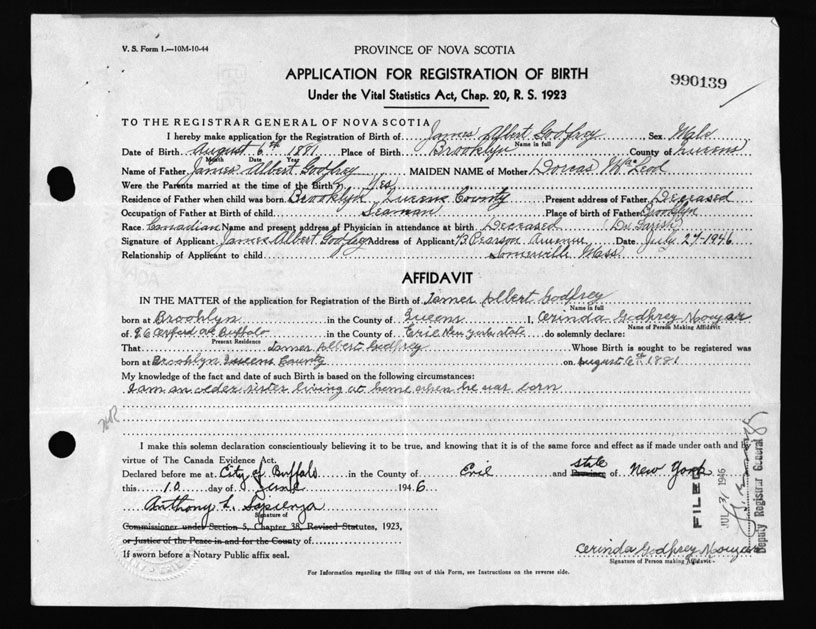 V. S. Form 1.—10M-10-44
PROVINCE OF NOVA SCOTIA
APPLICATION FOR REGISTRATION OF BIRTH
990139
Under the Vital Statistics Act, Chap. 20, R. S. 1923
TO THE REGISTRAR GENERAL OF NOVA SCOTIA
I hereby make application for the Registration of Birth of James Albert Godfrey Sex Male
Name in full
Date of Birth August 6th 1881 Place of Birth Brooklyn County of Queens
Month Date Year
Name of Father James Albert Godfrey MAIDEN NAME of Mother Dorcas McLeod
Were the Parents married at the time of the Birth Yes
Residence of Father when child was born Brooklyn Queens County Present address of Father Deceased
Occupation of Father at Birth of child Seaman Place of birth of Father Brooklyn
Race Canadian Name and present address of Physician in attendance at birth Deceased (Dr.
Signature of Applicant James Albert Godfrey Address of Applicant 73 Pearson Avenue Date July 27-1946
Relationship of Applicant to child Somerville Mass
AFFIDAVIT
IN THE MATTER of the application for Registration of the Birth of James Albert Godfrey
Name in full
born at Brooklyn in the County of Queens I, Cerinda Godfrey
Name of Person Making Affidavit
of 96 Oxford Ave Buffalo in the County of Erie New York state do solemnly declare:
Present Residence
That James Albert Godfrey Whose Birth is sought to be registered was
born at Brooklyn Queens County on August 6th 1881
My knowledge of the fact and date of such Birth is based on the following circumstances:
I am an older sister living at home when he was born
I make this solemn declaration conscientiously believing it to be true, and knowing that it is of the same force and effect as if made under oath and by
virtue of The Canada Evidence Act.
Declared before me at City of Buffalo in the County of Erie and state Province of New York
this 10 day of June 1946
Anthony L. Sapienza
Signature of
Commissioner under Section 5, Chapter 38, Revised Statutes, 1923,
or Justice of the Peace in and for the County of
If sworn before a Notary Public affix seal.
Cerinda Godfrey
Signature of Person making Affidavit
For Information regarding the filling out of this Form, see Instructions on the reverse side.
FILED
JUL 31 1946
Deputy Registrar General